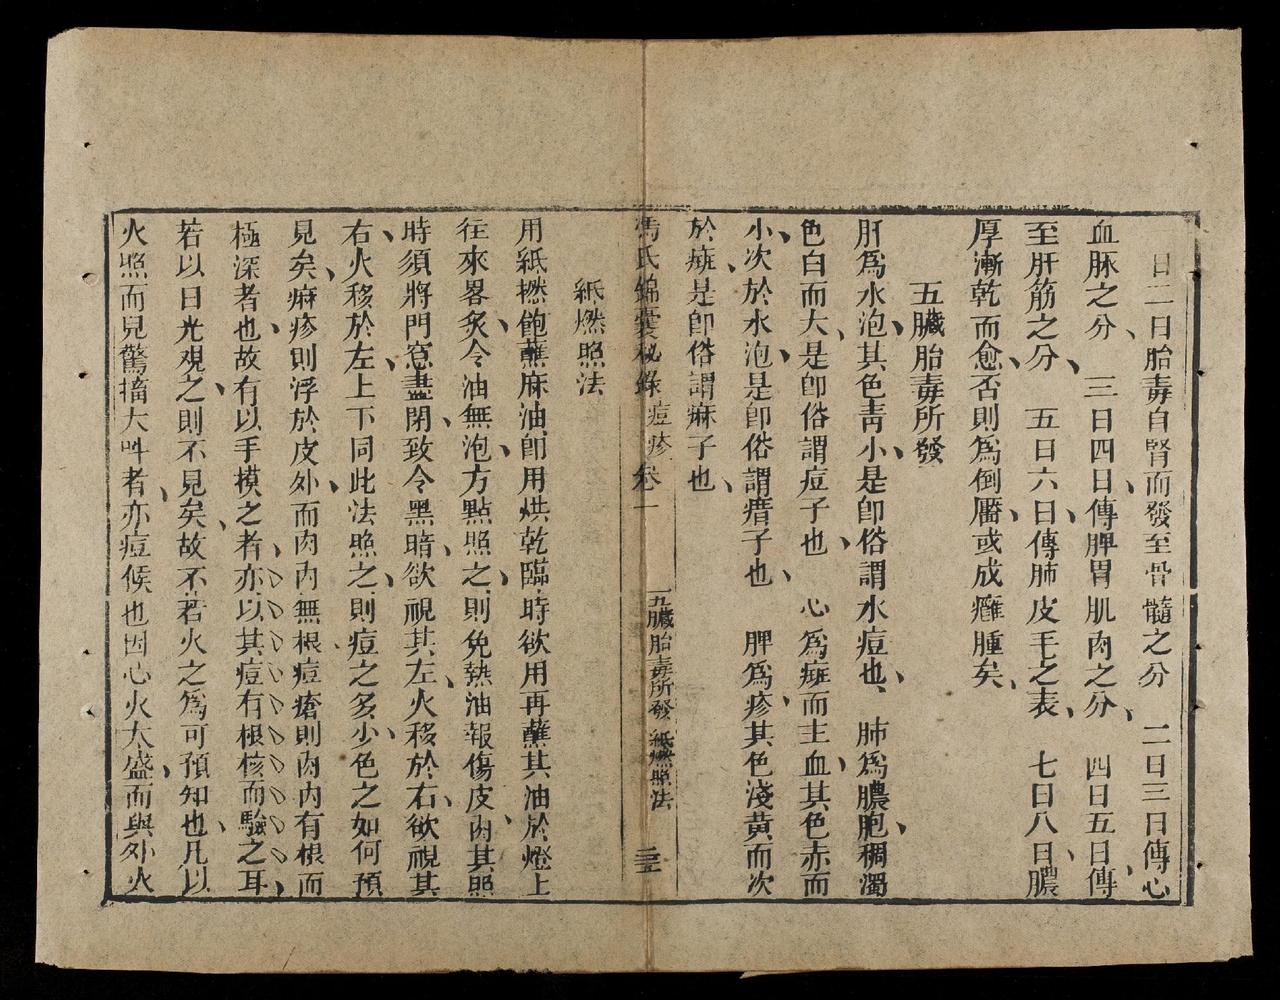 日二日胎毒自腎而發至骨髓之分　二日三日傳心
血脉之分　三日四日傳脾胃肌肉之分　四日五日傳
至肝筋之分　五日六日傳肺皮毛之表　七日八日膿
厚漸乾而愈否則爲倒靨或成癰腫矣
五臟胎毒所發
肝爲水泡其色靑小是卽俗謂水痘也　肺爲膿胞稠濁
色白而大是卽俗謂痘子也　心爲癍而主血其色赤而
小次於水泡是卽俗謂㾦子也　脾爲疹其色淺黃而次
於癍是卽俗謂麻子也
馮氏錦囊秘錄　痘疹　卷一　五臟胎毒所發　紙燃照法　二三
紙燃照法
用紙撚飽蘸麻油卽用烘乾臨時欲用再蘸其油於燈上
往來畧炙令油無泡方點照之則免熱油報傷皮肉其照
時須將門窓盡閉致令黑暗欲視其左火移於右欲視其
右火移於左上下同此法照之則痘之多少色之如何預
見矣痲疹則浮於皮外而肉內無根痘瘡則肉內有根而
極深者也故有以手摸之者亦以其痘有根核而驗之耳
若以日光觀之則不見矣故不若火之爲可預知也凡以
火照而見驚搐大呌者亦痘候也因心火太盛而與外火